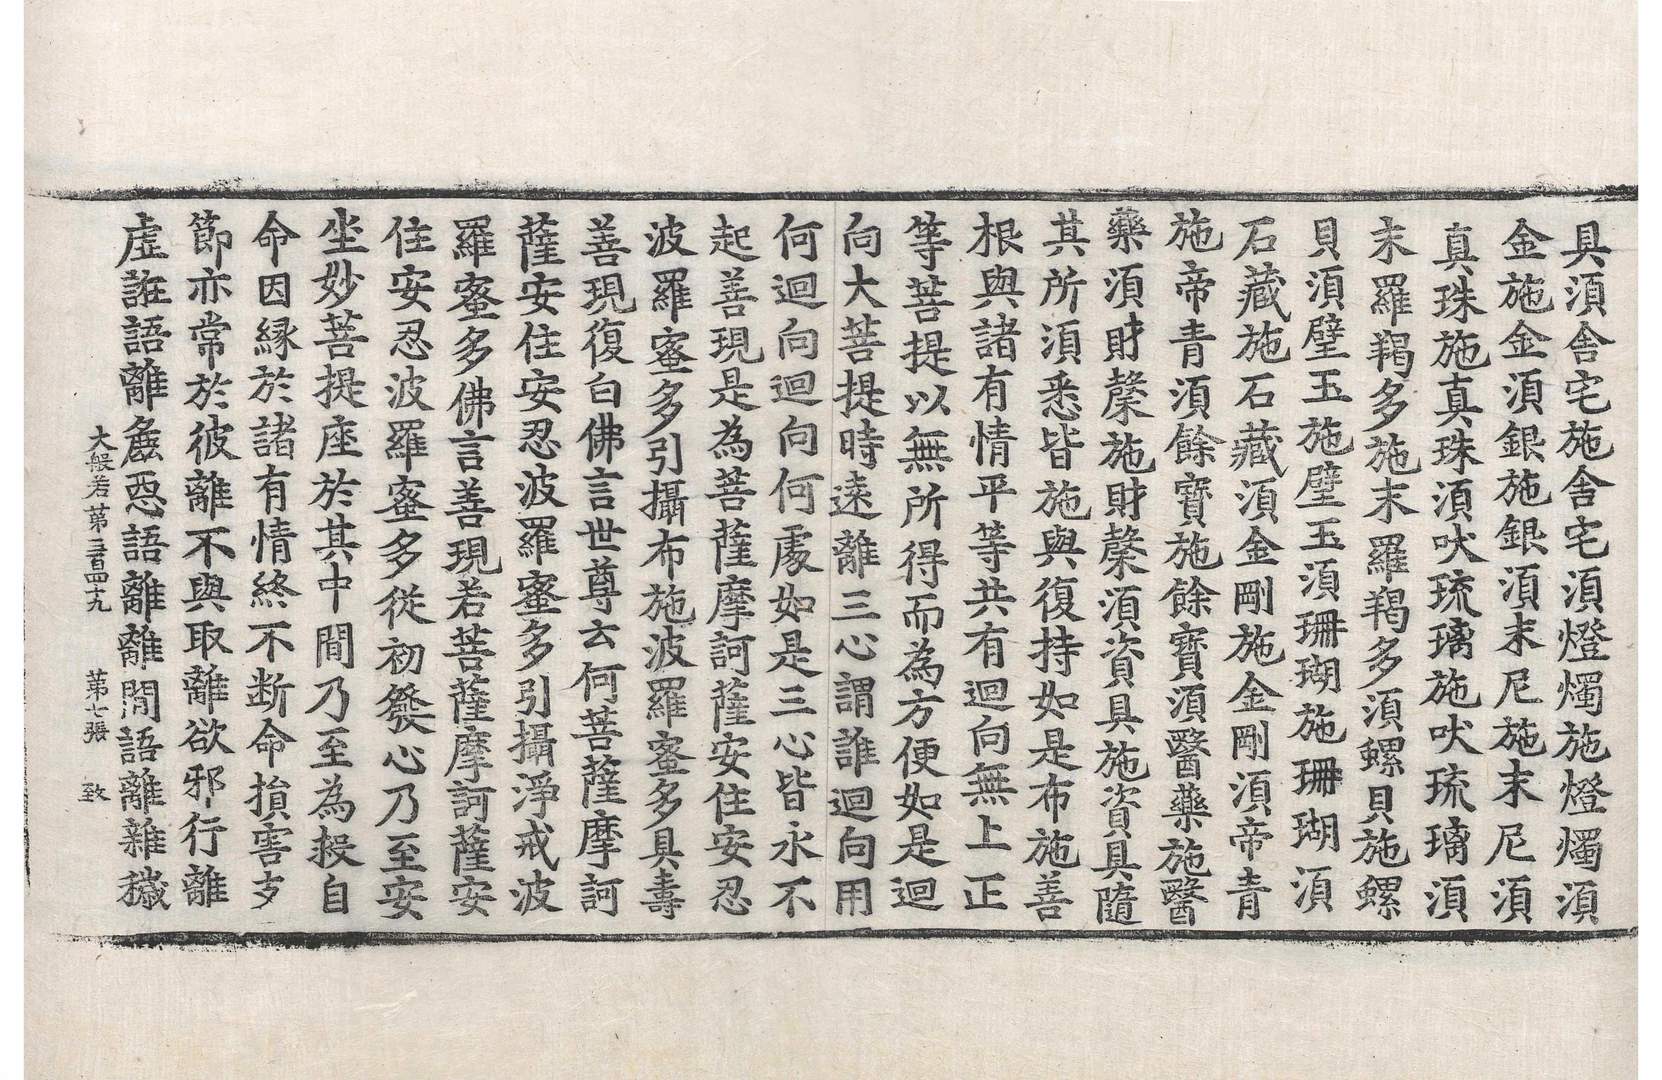 具須舍宅施舍宅須燈燭施燈燭須
金施金須銀施銀須末尼施末尼須
真珠施真珠須吠琉璃施吠琉璃須
末羅羯多施末羅羯多須螺貝施螺
貝須璧玉施璧玉須珊瑚施珊瑚須
石藏施石藏須金剛施金剛須帝青
施帝青須餘寶施餘寶須醫藥施醫
藥須財槃施財槃須資具施資具隨
其所須悉皆施與復持如是布施善
根與諸有情平等共有迴向無上正
等菩提以無所得而為方便如是迴
向大菩提時遠離三心謂誰迴向用
何迴向迴向何處如是三心皆永不
起善現是為菩薩摩訶薩安住安忍
波羅蜜多引攝布施波羅蜜多具壽
善現復白佛言世尊云何菩薩摩訶
薩安住安忍波羅蜜多引攝淨戒波
羅蜜多佛言善現若菩薩摩訶薩安
住安忍波羅蜜多從初發心乃至安
坐妙菩提座於其中間乃至為救自
命因緣於諸有情終不斷命損害支
節亦常於彼離不與取離欲邪行離
虛誑語離麁惡語離離間語離雜穢
大般若第三百四十九 第七張 致